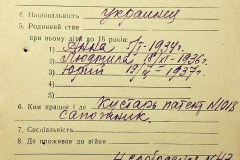 4. Національність українці
5. Родинний стан
при ньому діти до 16 років:
1) Анна 1934г.
2) Людмила 18/VI-1936г.
3) Юрий 19/IV-1937г.
4)
5)
6. Ким працює і де Кустарь патент N 1018
сапожник.
7. Спеціяльність
8. Де проживав до війни